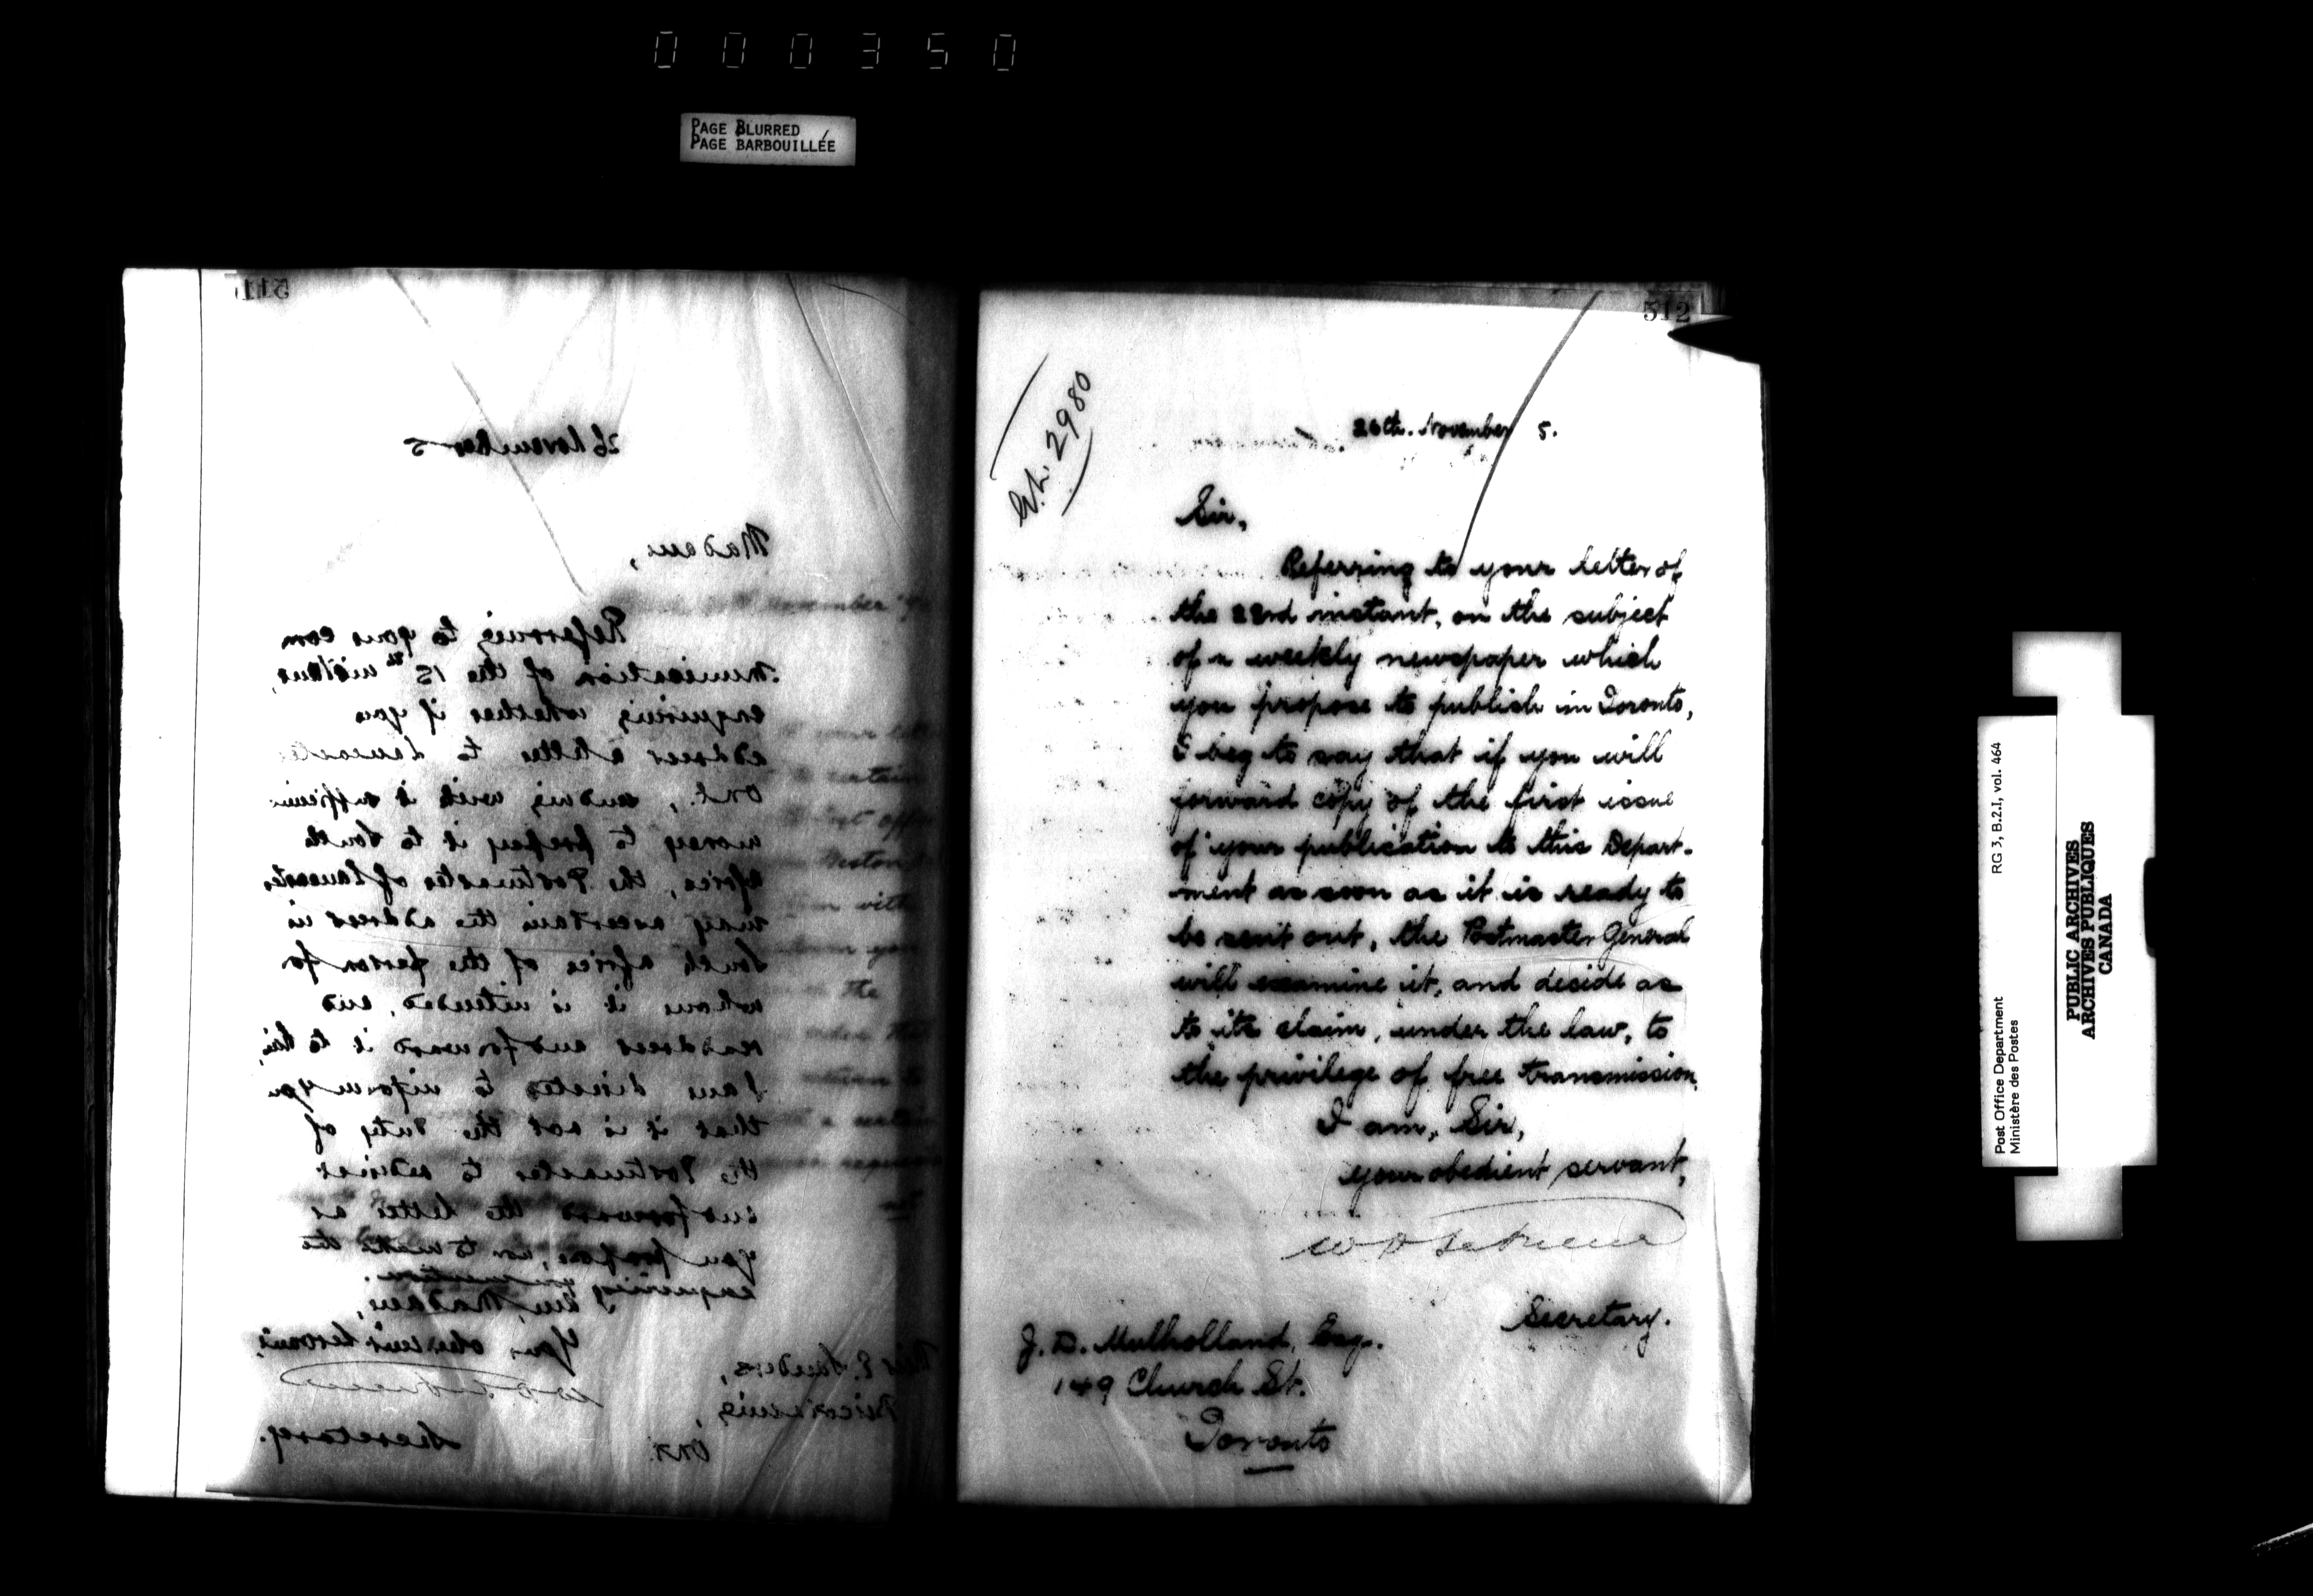 000350
PAGE BLURRED
PAGE BARBOUILLÉE
511
26 November 5
Madam,
Referring to your com
munication of the 15th instant,
enquiring whether if you
address a letter to Lancaster
Ont., sending with it sufficient
money to prepay it to South
Africa, the Postmaster of Lancaster
may ascertain the address in
South Africa of the person for
whom it is intended, and
readdress and forward it to him,
I am directed to inform you
that it is not the duty of
the Postmaster to
and forward the letter as
you propose, nor to make the
enquiring you mention.
I am, Madam,
Your obedient Servant,
Secretary.
Miss E. Sanders,
Ont.
512
26th. November 5.
2980
Sir,
Referring to your letter of
the 22nd instant, on the subject
of a weekly newspaper which
you propose to publish in Toronto,
I beg to say that if you will
forward copy of the first issue
of your publication to this Depart-
ment as soon as it is ready to
be sent out, the Postmaster General
will examine it, and decide as
to its claim, under the law, to
the privilege of free transmission.
I am, Sir,
your obedient servant,
Secretary.
J. D. Mulholland, Esq.
149 Church St.
Toronto
Post Office Department
Ministère des Postes
RG 3, B.2.1, vol. 464
PUBLIC ARCHIVES
ARCHIVES PUBLIQUES
CANADA